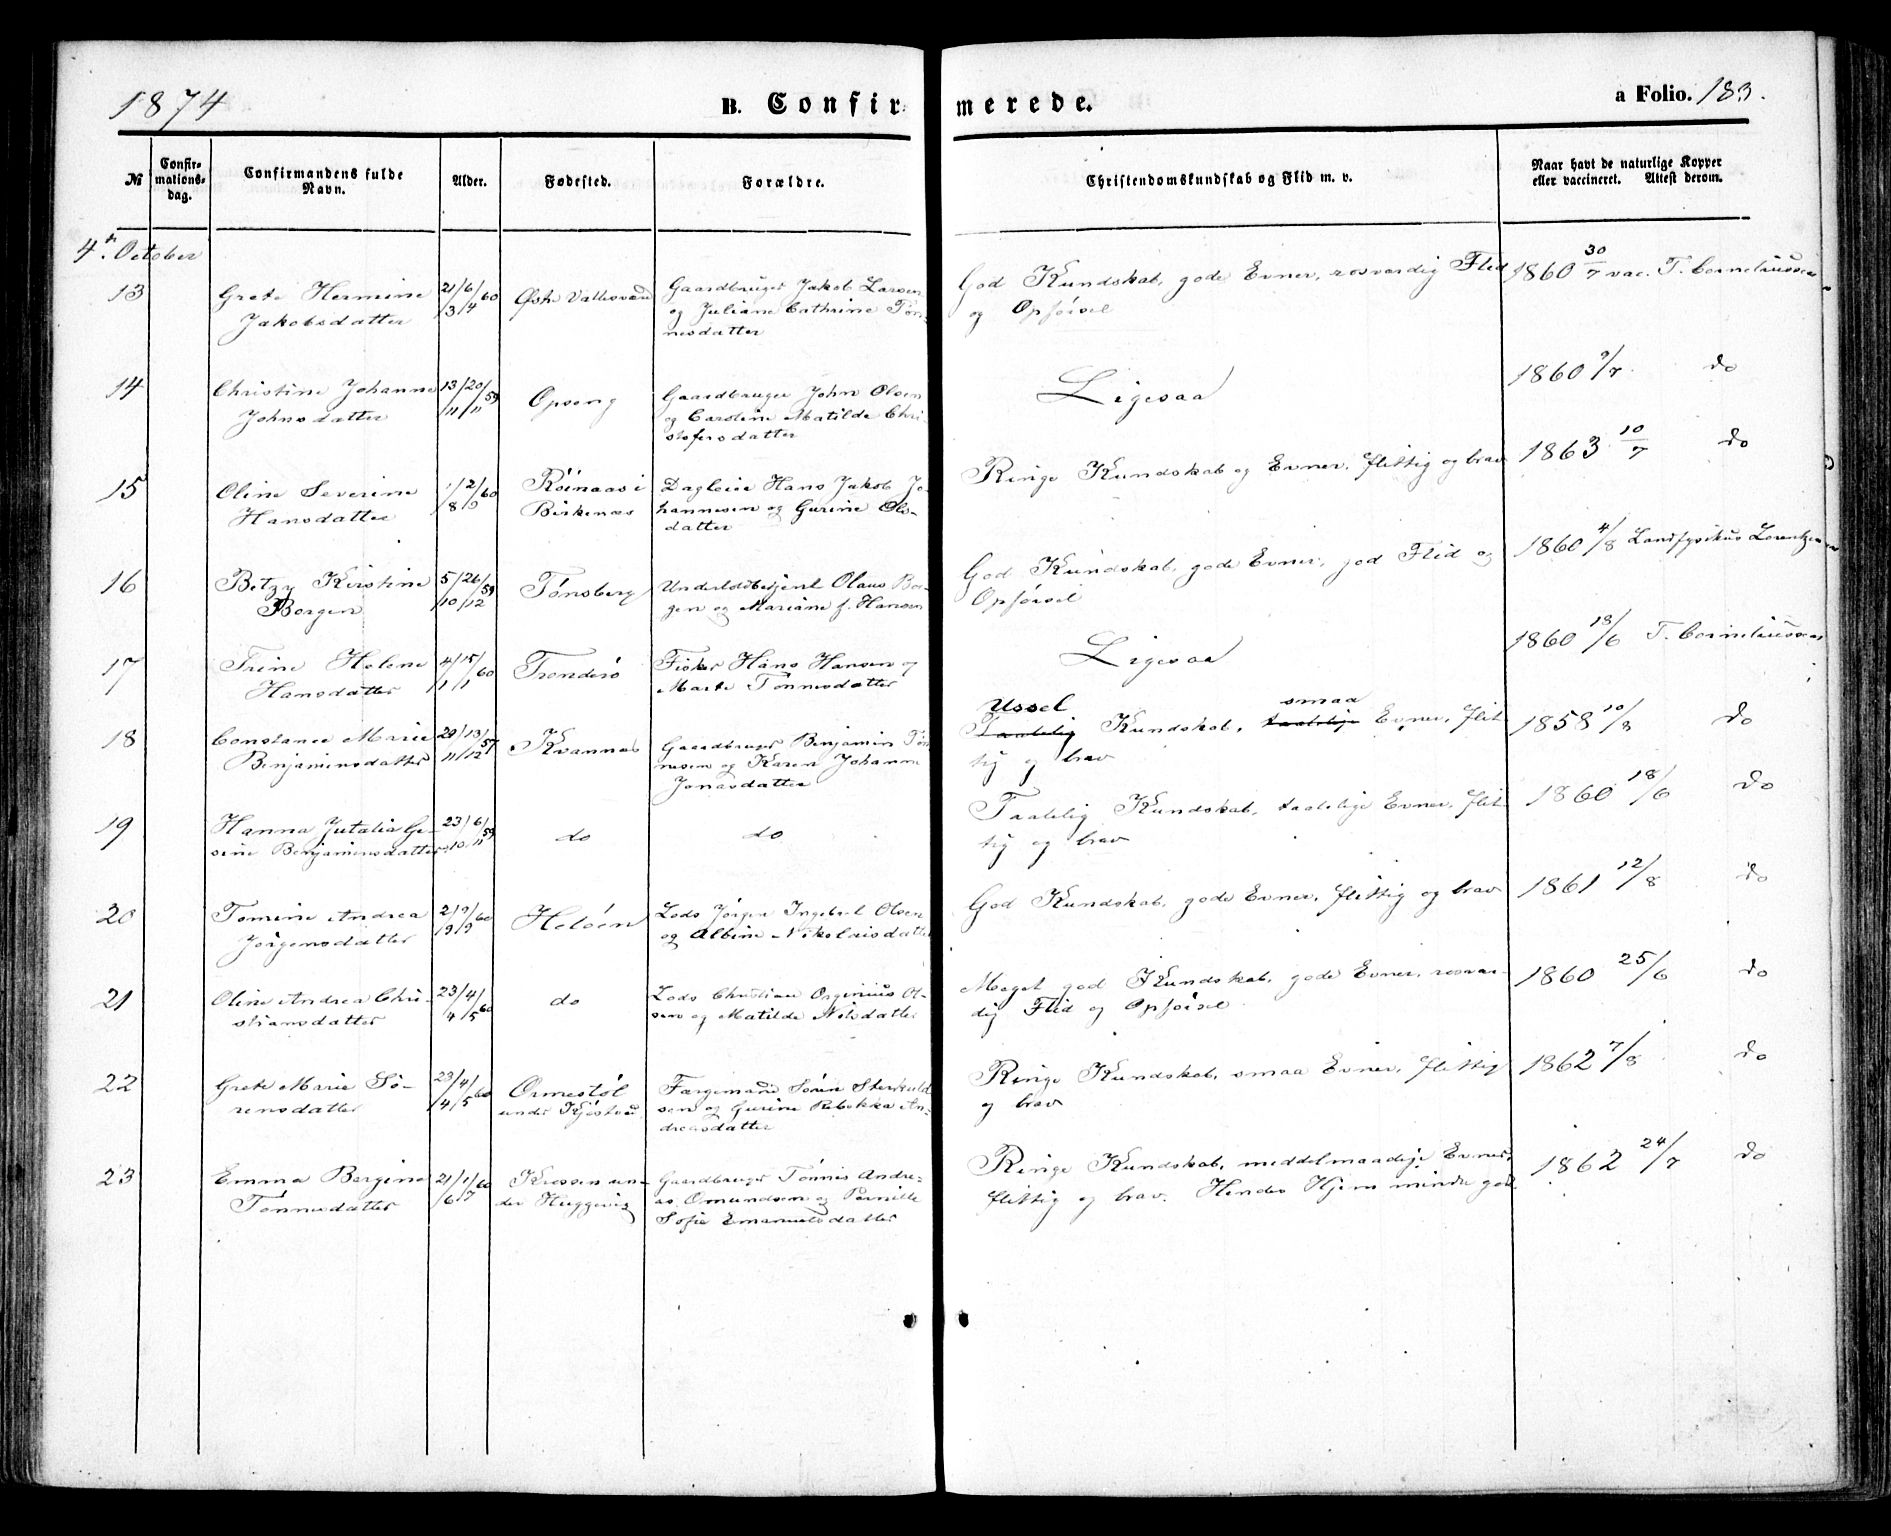 1874
B. Confirmerede.
a Folio. 183.
№
Confirmationsdag.
Confirmandens fulde Navn.
Alder.
Fødested.
Forældre.
Christendomskundskab og Flid m. v.
Naar havt de naturlige Kopper eller vaccineret. Attest derom.
4de October
13 Grete Hermine 21/6 60 Østr Vallesværd Gaardbruger Jakob Larsen God Kundskab, gode Evner, rosværdig Flid 1860 30/7 vac. T. Corneliussen
Jakobsdatter 13/4 og Juliane Cathrine Tøn- og Opførsel
nesdatter
14 Christine Johanne 13/20/59 Opseng Gaardbruger John Olsen Ligesaa 1860 9/7 do
Johnsdatter 11/11 og Caroline Matilde Chri-
stofersdatter
15 Oline Severine 1/2/60 Röinaas i Dagleie Hans Jakob Jo- Ringe Kundskab og Evner, flittig og brav 1863 10/7 do
Hansdatter 8/9 Birkenæs hannesen og Gurine Ols-
datter
16 Betzy Kristine 5/26/59 Tønsberg Olaus Bor- God Kundskab, gode Evner, god Flid og 1860 4/8 Landfysikus Lorentzen
Borgen 10/12 gen og Mariane f. Hansen Opførsel
17 Trine Helene 4/15/60 Trondsö Fisker Hans Hansen og Ligesaa 1860 18/6 T. Corneliussen
Hansdatter 1/1 Marte Tønnesdatter
Ussel smaa
18 Constance Marie 29/13/57 Kvannes Gaardbruger Benjamin Tøn- Taalelig Kundskab, taalelige Evner, flit- 1858 10/8 do
Benjaminsdatter 11/12 nesen og Karen Johanne tig og brav
Jonasdatter
19 Hanna Jutalia Ge- 23/6/59 do do Taalelig Kundskab, taalelige Evner, flit- 1860 18/6 do
sine Benjaminsdatter 10/11 tig og brav
20 Tomine Andrea 2/9/60 Helöen Lods Jörgen Ingebret Olsen God Kundskab, gode Evner, flittig og brav 1861 12/8 do
Jörgensdatter 9/9 og Albine Nikolaisdatter
21 Oline Andrea Chri- 23/4/60 do Lods Christian Ol- Meget god Kundskab, gode Evner, rosvær- 1860 25/6 do
stiansdatter 4/5 sen og Matilde Nilsdatter dig Flid og Opførsel
22 Grete Marie Sö- 23/4/60 Ormestöl Færgemand Sören Ringe Kundskab, smaa Evner, flittig 1862 7/8 do
rensdatter 4/5 under sen og Gurine Rebekka An- og brav
dreasdatter
23 Emma Bergine 21/1/60 un- Gaardbruger Tönnes Andre- Ringe Kundskab, middelmaadige Evner, 1862 24/7 do
Tönnesdatter 6/7 der as Omundsen og Pernille flittig og brav. Hendes Hjem mindre godt
Sofie Emanuelsdatter